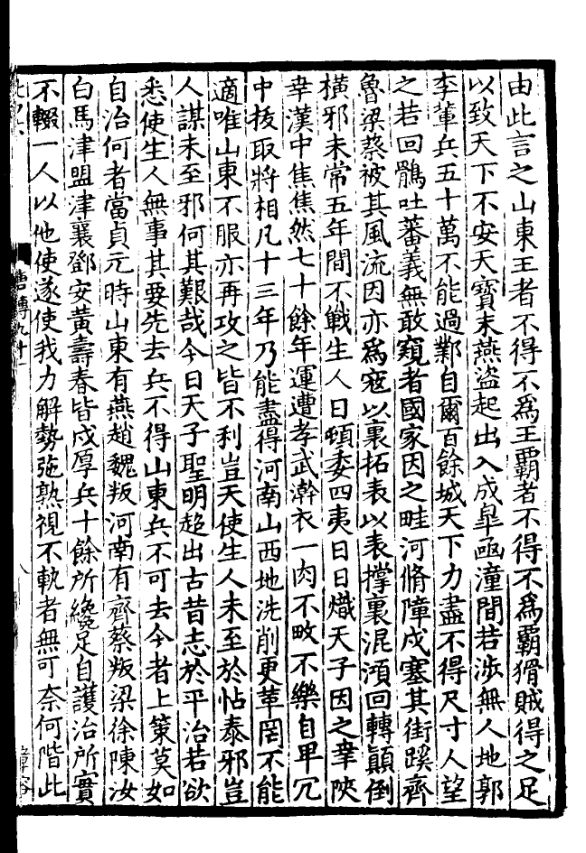 由此言之山東王者不得不爲王霸者不得不爲霸猾賊得之足
以致天下不安天寶末燕盜起出入成臯函潼間若涉無人地郭
李輩兵五十萬不能過鄴自爾百餘城天下力盡不得尺寸人望
之若回鶻吐蕃義無敢窺者國家因之畦河脩障戍塞其街蹊齊
魯梁蔡被其風流因亦爲寇以裏拓表以表撐裏混澒回轉顛倒
橫邪未常五年間不戰生人日頓委四夷日日熾天子因之幸陝
幸漢中焦焦然七十餘年運遭孝武澣衣一肉不畋不樂自卑冗
中拔取將相凡十三年乃能盡得河南山西地洗削更革罔不能
適唯山東不服亦再攻之皆不利豈天使生人未至於帖泰邪豈
人謀未至邪何其艱哉今日天子聖明超出古昔志於平治若欲
悉使生人無事其要先去兵不得山東兵不可去今者上策莫如
自治何者當貞元時山東有燕趙魏叛河南有齊蔡叛梁徐陳汝
白馬津盟津襄鄧安黃壽春皆戍厚兵十餘所纔足自護治所實
不輟一人以他使遂使我力解勢弛熟視不軌者無可奈何階此
唐傳九十一
八